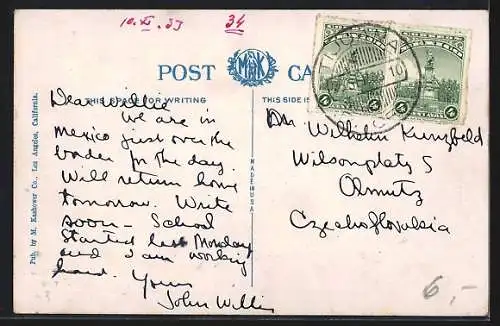 10.XI.33 34
POST CA
M.K.
THIS SPACE FOR WRITING
THIS SIDE IS
Dear Willie
We are in
Mexico just over the
border for the day.
Will return home
tomorrow. Write
soon – School
Started last Monday
and I am working
hard. Yours
John Willis
MADE IN U.S.A.
Pub. by M. Kashower Co., Los Angeles, California.
TIJUANA
10
4
4
Wilhelm Kunzfeld
Wilsonplatz 5
Olmütz
Czechoslovakia
6,-